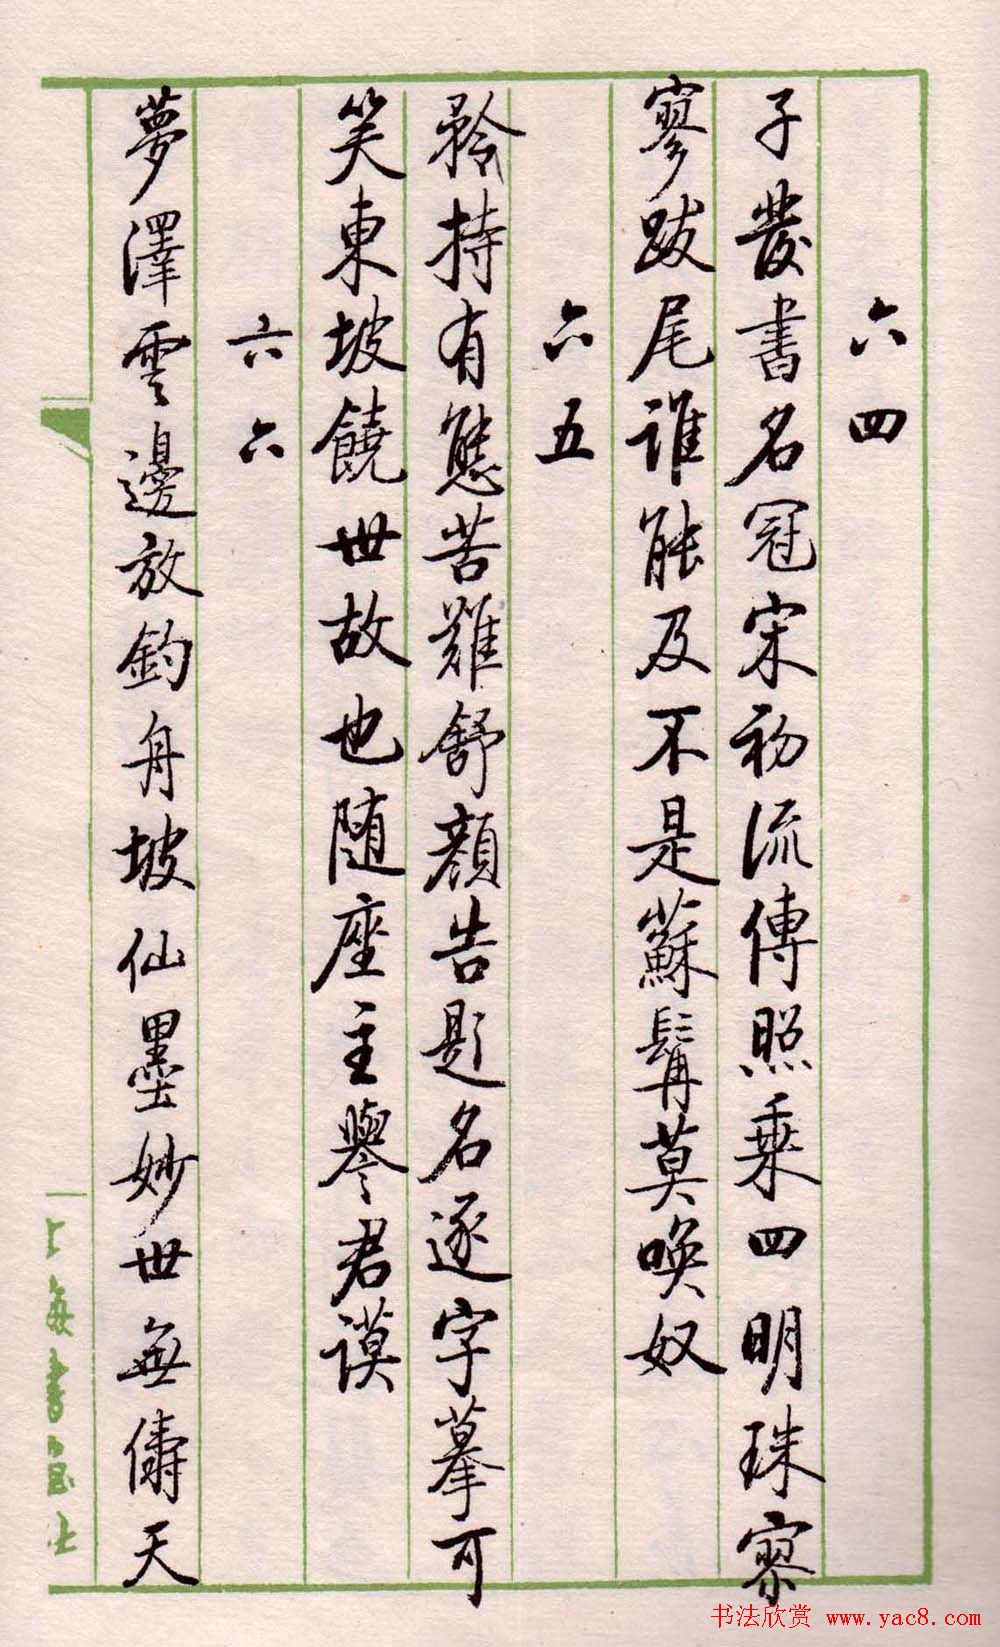 六四
子發書名冠宋初流傳照乘四明珠寂
寥跋尾誰能及不是蘇髯莫喚奴
六五
矜持有態苦難舒顏告題名逐字摹可
笑東坡饒世故也随座主譽君謨
六六
夢澤雲邊放釣舟坡仙墨妙世無儔天
上海書畫社
书法欣赏 www.yac8.com